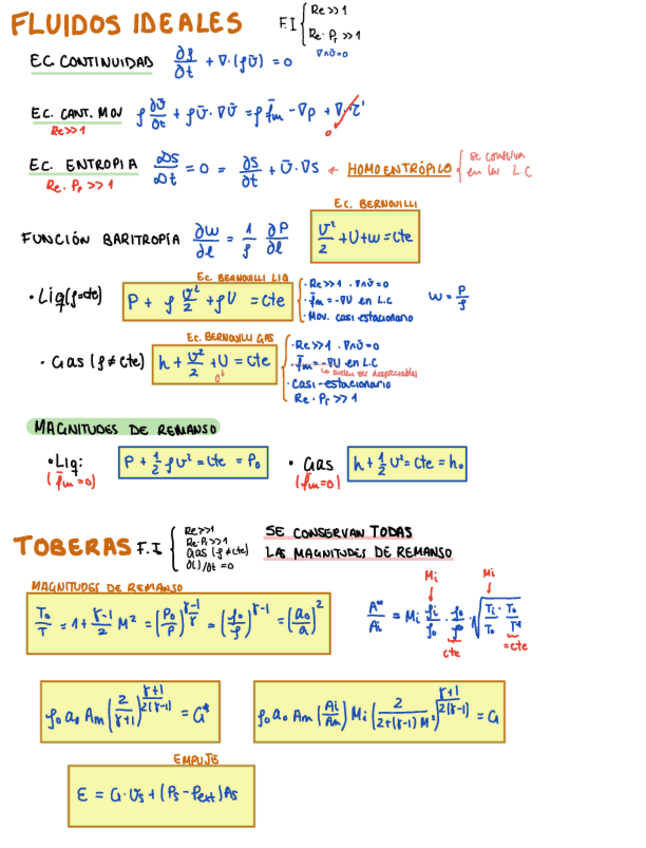 FLUIDOS IDEALES F.I { Re >> 1
Re·Pr >> 1
∇∧ū=0
EC. CONTINUIDAD ∂ρ/∂t + ∇·(ρū) = 0
EC. CANT. MOV ρ ∂ū/∂t + ρū·∇ū = ρf̄m − ∇p + ∇·τ̄' 0
Re>>1
EC. ENTROPIA DS/Dt = 0 = ∂S/∂t + ū·∇S ← HOMOENTRÓPICO { se conserva
en las L.C
Re·Pr >> 1
EC. BERNOUILLI
FUNCIÓN BARITROPÍA ∂w/∂l = 1/ρ ∂P/∂l U²/2 + U + w = cte
EC. BERNOUILLI LIQ
• Liq (ρ=cte) P + ρ U²/2 + ρU = cte { · Re >> 1 · ∇∧ū=0
· f̄m = -∇U en L.C
· Mov. casi estacionario
W = P/ρ
EC. BERNOUILLI GAS
• Gas (ρ≠cte) h + U²/2 + U = cte { · Re >> 1 · ∇∧ū=0
0
· f̄m = -∇U en L.C
↳ suelen ser despreciables
· Casi-estacionario
Re·Pr >> 1
MAGNITUDES DE REMANSO
• Liq: P + 1/2 ρU² = cte = P₀ • Gas h + 1/2 U² = cte = h₀
(f̄m=0) (f̄m=0)
TOBERAS F.I { Re>>1
Re·Pr>>1
Gas (ρ≠cte)
∂()/∂t = 0
SE CONSERVAN TODAS
LAS MAGNITUDES DE REMANSO
MAGNITUDES DE REMANSO
T₀/T = 1 + (γ-1)/2 M² = (P₀/P)^((γ-1)/γ) = (ρ₀/ρ)^(γ-1) = (a₀/a)²
Mi Mi
A*/Ai = Mi ρi/ρ₀ · ρ₀/ρ* · √(Ti/T₀ · T₀/T*)
cte =cte
ρ₀ a₀ Am (2/(γ+1))^((γ+1)/2(γ-1)) = G*
ρ₀ a₀ Am (Ai/Am) Mi (2/(2+(γ-1)M²))^((γ+1)/2(γ-1)) = G
EMPUJE
E = G·Us + (Ps - Pext) As